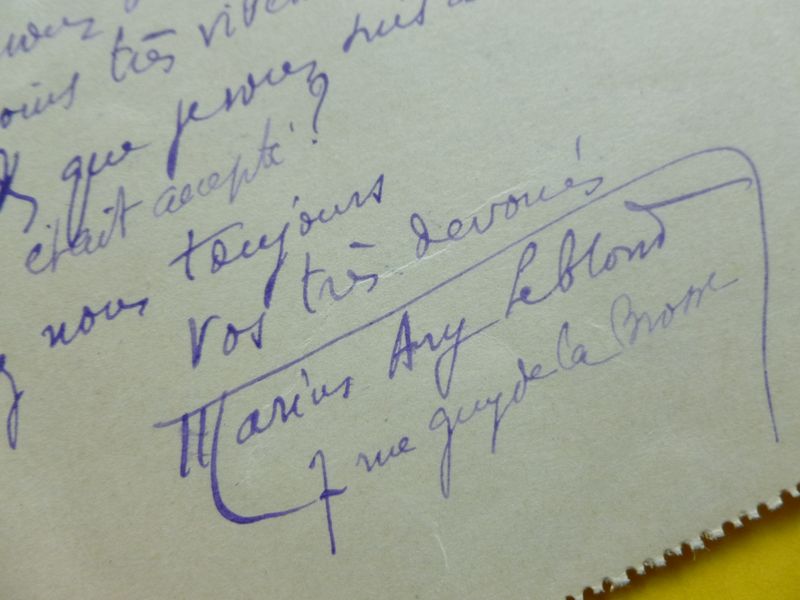 très vive
que je vous suis
était accepté ?
nous toujours
vos très devoués
Marius Ary Leblond
7 rue guy de la Brosse